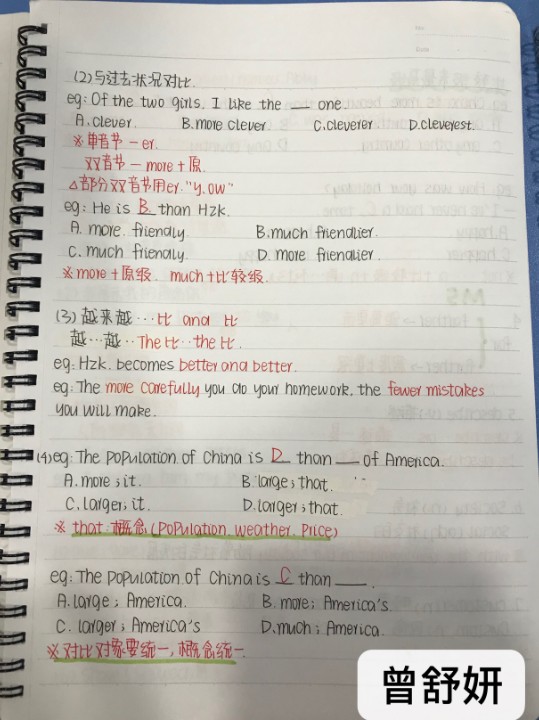 (2)与过去状况对比.
eg: Of the two girls, I like the __ one.
A. clever. B. more clever. C. cleverer. D. cleverest.
※ 单音节 - er.
双音节 - more + 原.
△部分双音节用er. "y. ow"
eg: He is B than Hzk.
A. more friendly B. much friendlier.
C. much friendly. D. more friendlier.
※ more + 原级. much + 比较级.
(3) 越来越... 比 and 比
越...越.. The 比.. the 比.
eg: Hzk. becomes better and better.
eg: The more carefully you do your homework, the fewer mistakes
you will make.
(4) eg: The Population of China is D than __ of America.
A. more; it. B. large; that.
C. larger; it. D. larger; that.
※ that: 概念 (Population, weather, Price)
eg: The Population of China is C than __.
A. large; America. B. more; America's.
C. larger; America's D. much; America.
※ 对比对象要统一, 概念统一.
曾舒妍